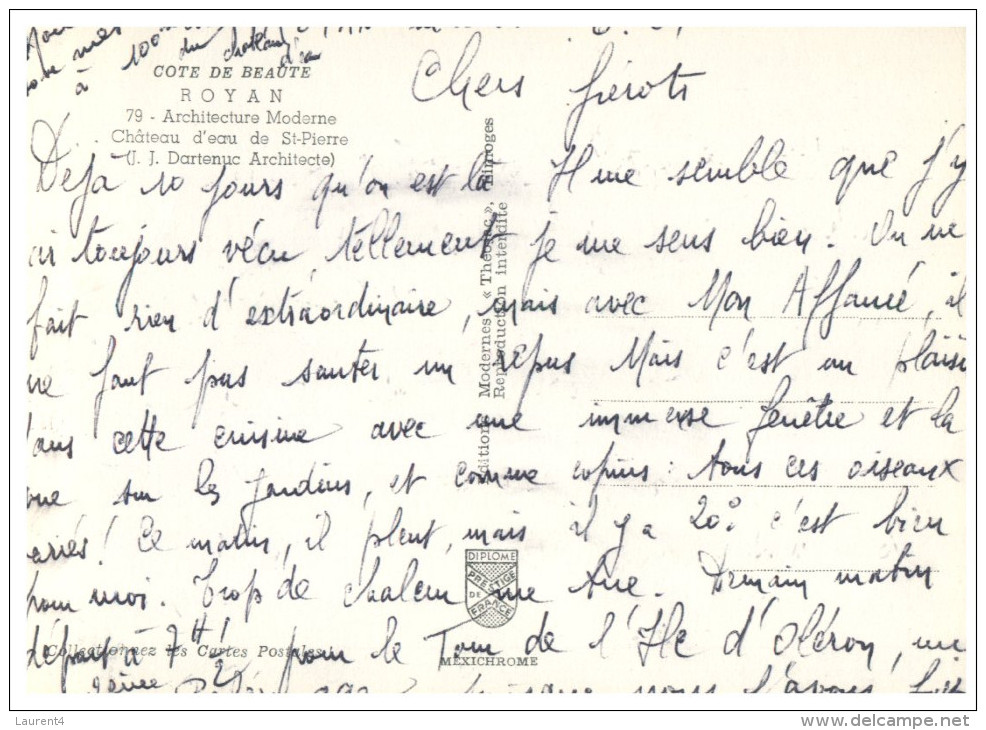 nous sommes
à 100m
du chateau
d'eau
COTE DE BEAUTE
ROYAN
79 - Architecture Moderne
Château d'eau de St-Pierre
(J. J. Dartenuc Architecte)
Chers frérots
Déjà 10 jours qu'on est là. Il me semble que j'y
ai toujours vécu, tellement je me sens bien. On ne
fait rien d'extraordinaire, mais avec Mon Affamé, il
ne faut pas sauter un repas Mais c'est un plaisi
dans cette cuisine avec une immense fenêtre et la
vue sur les jardins, et comme copins : tous ces oiseaux
Ce matin, il pleut, mais il y a 20°. c'est bien
pour moi. Trop de chaleur me tue. Demain matin
départ à 7H! pour le Tour de l'Ile d'Oléron, un
nous l'avons
Editions Modernes « Théojac », Limoges
Reproduction interdite
DIPLOME
PRESTIGE
DE
FRANCE
Collectionnez les Cartes Postales
MEXICHROME
Laurent4
delcampe.net